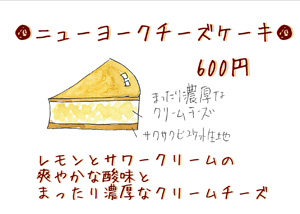 ニューヨークチーズケーキ
600円
まったり濃厚な
クリームチーズ
サクサクビスケット生地
レモンとサワークリームの
爽やかな酸味と
まったり濃厚なクリームチーズ